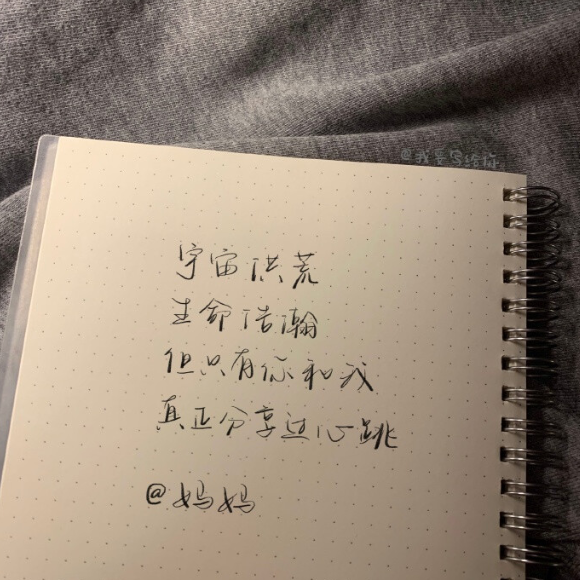 @我是写给你
宇宙洪荒
生命浩瀚
但只有你和我
真正分享过心跳
@妈妈